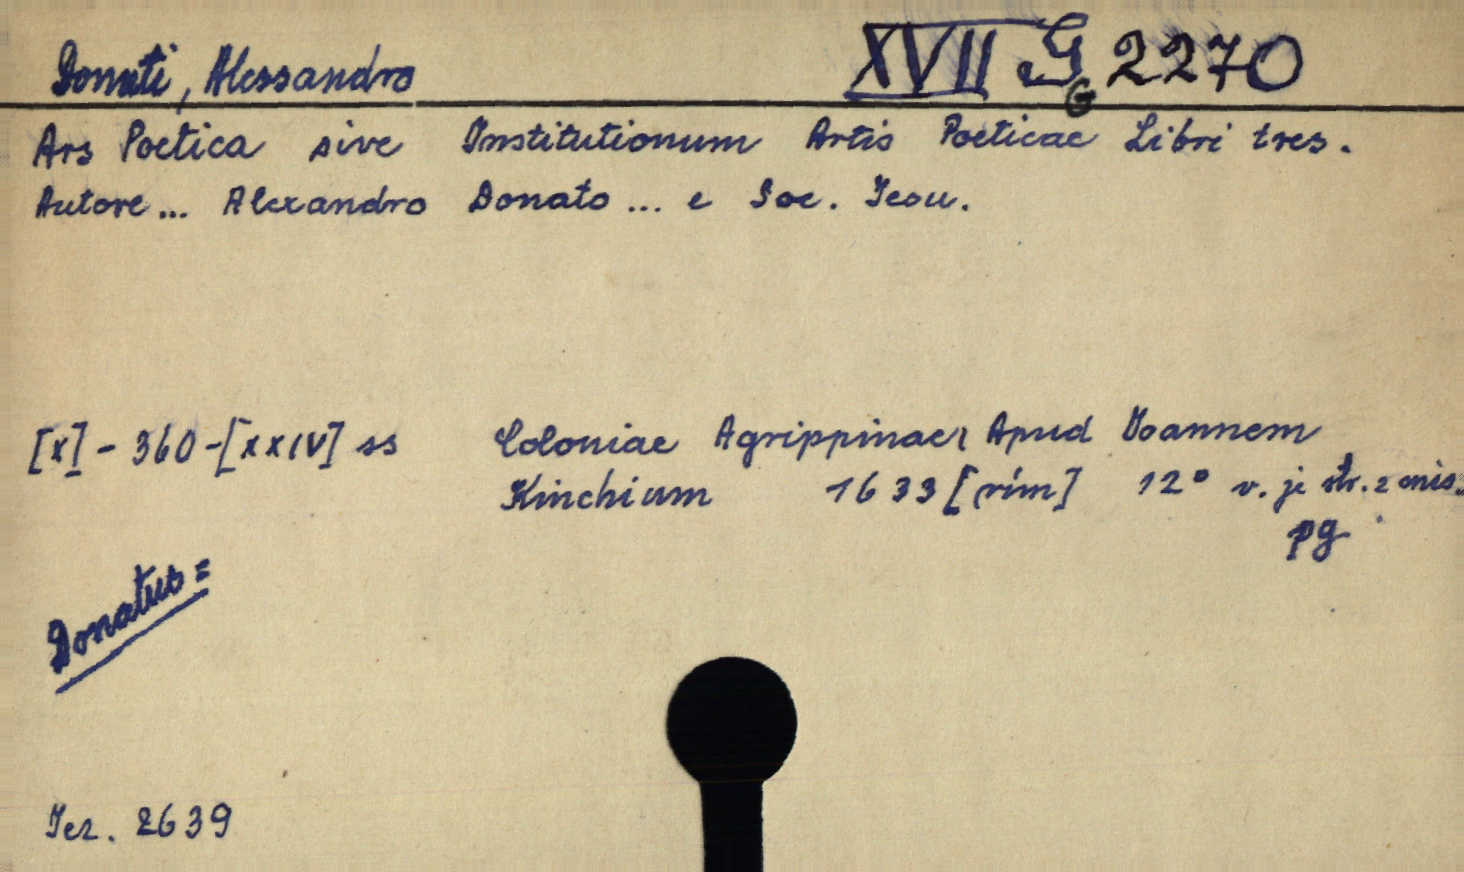 Donati, Alessandro XVII G 2270
G
Ars Poetica sive Institutionum Artis Poeticae Libri tres.
Autore... Alexandro Donato ... e Soc. Jesu.
[x] - 360 - [xxIV] ss Coloniae Agrippinae, Apud Joannem
Kinchium 1633 [rím] 12° v. je str. z
pg
Donatus =
Jez. 2639